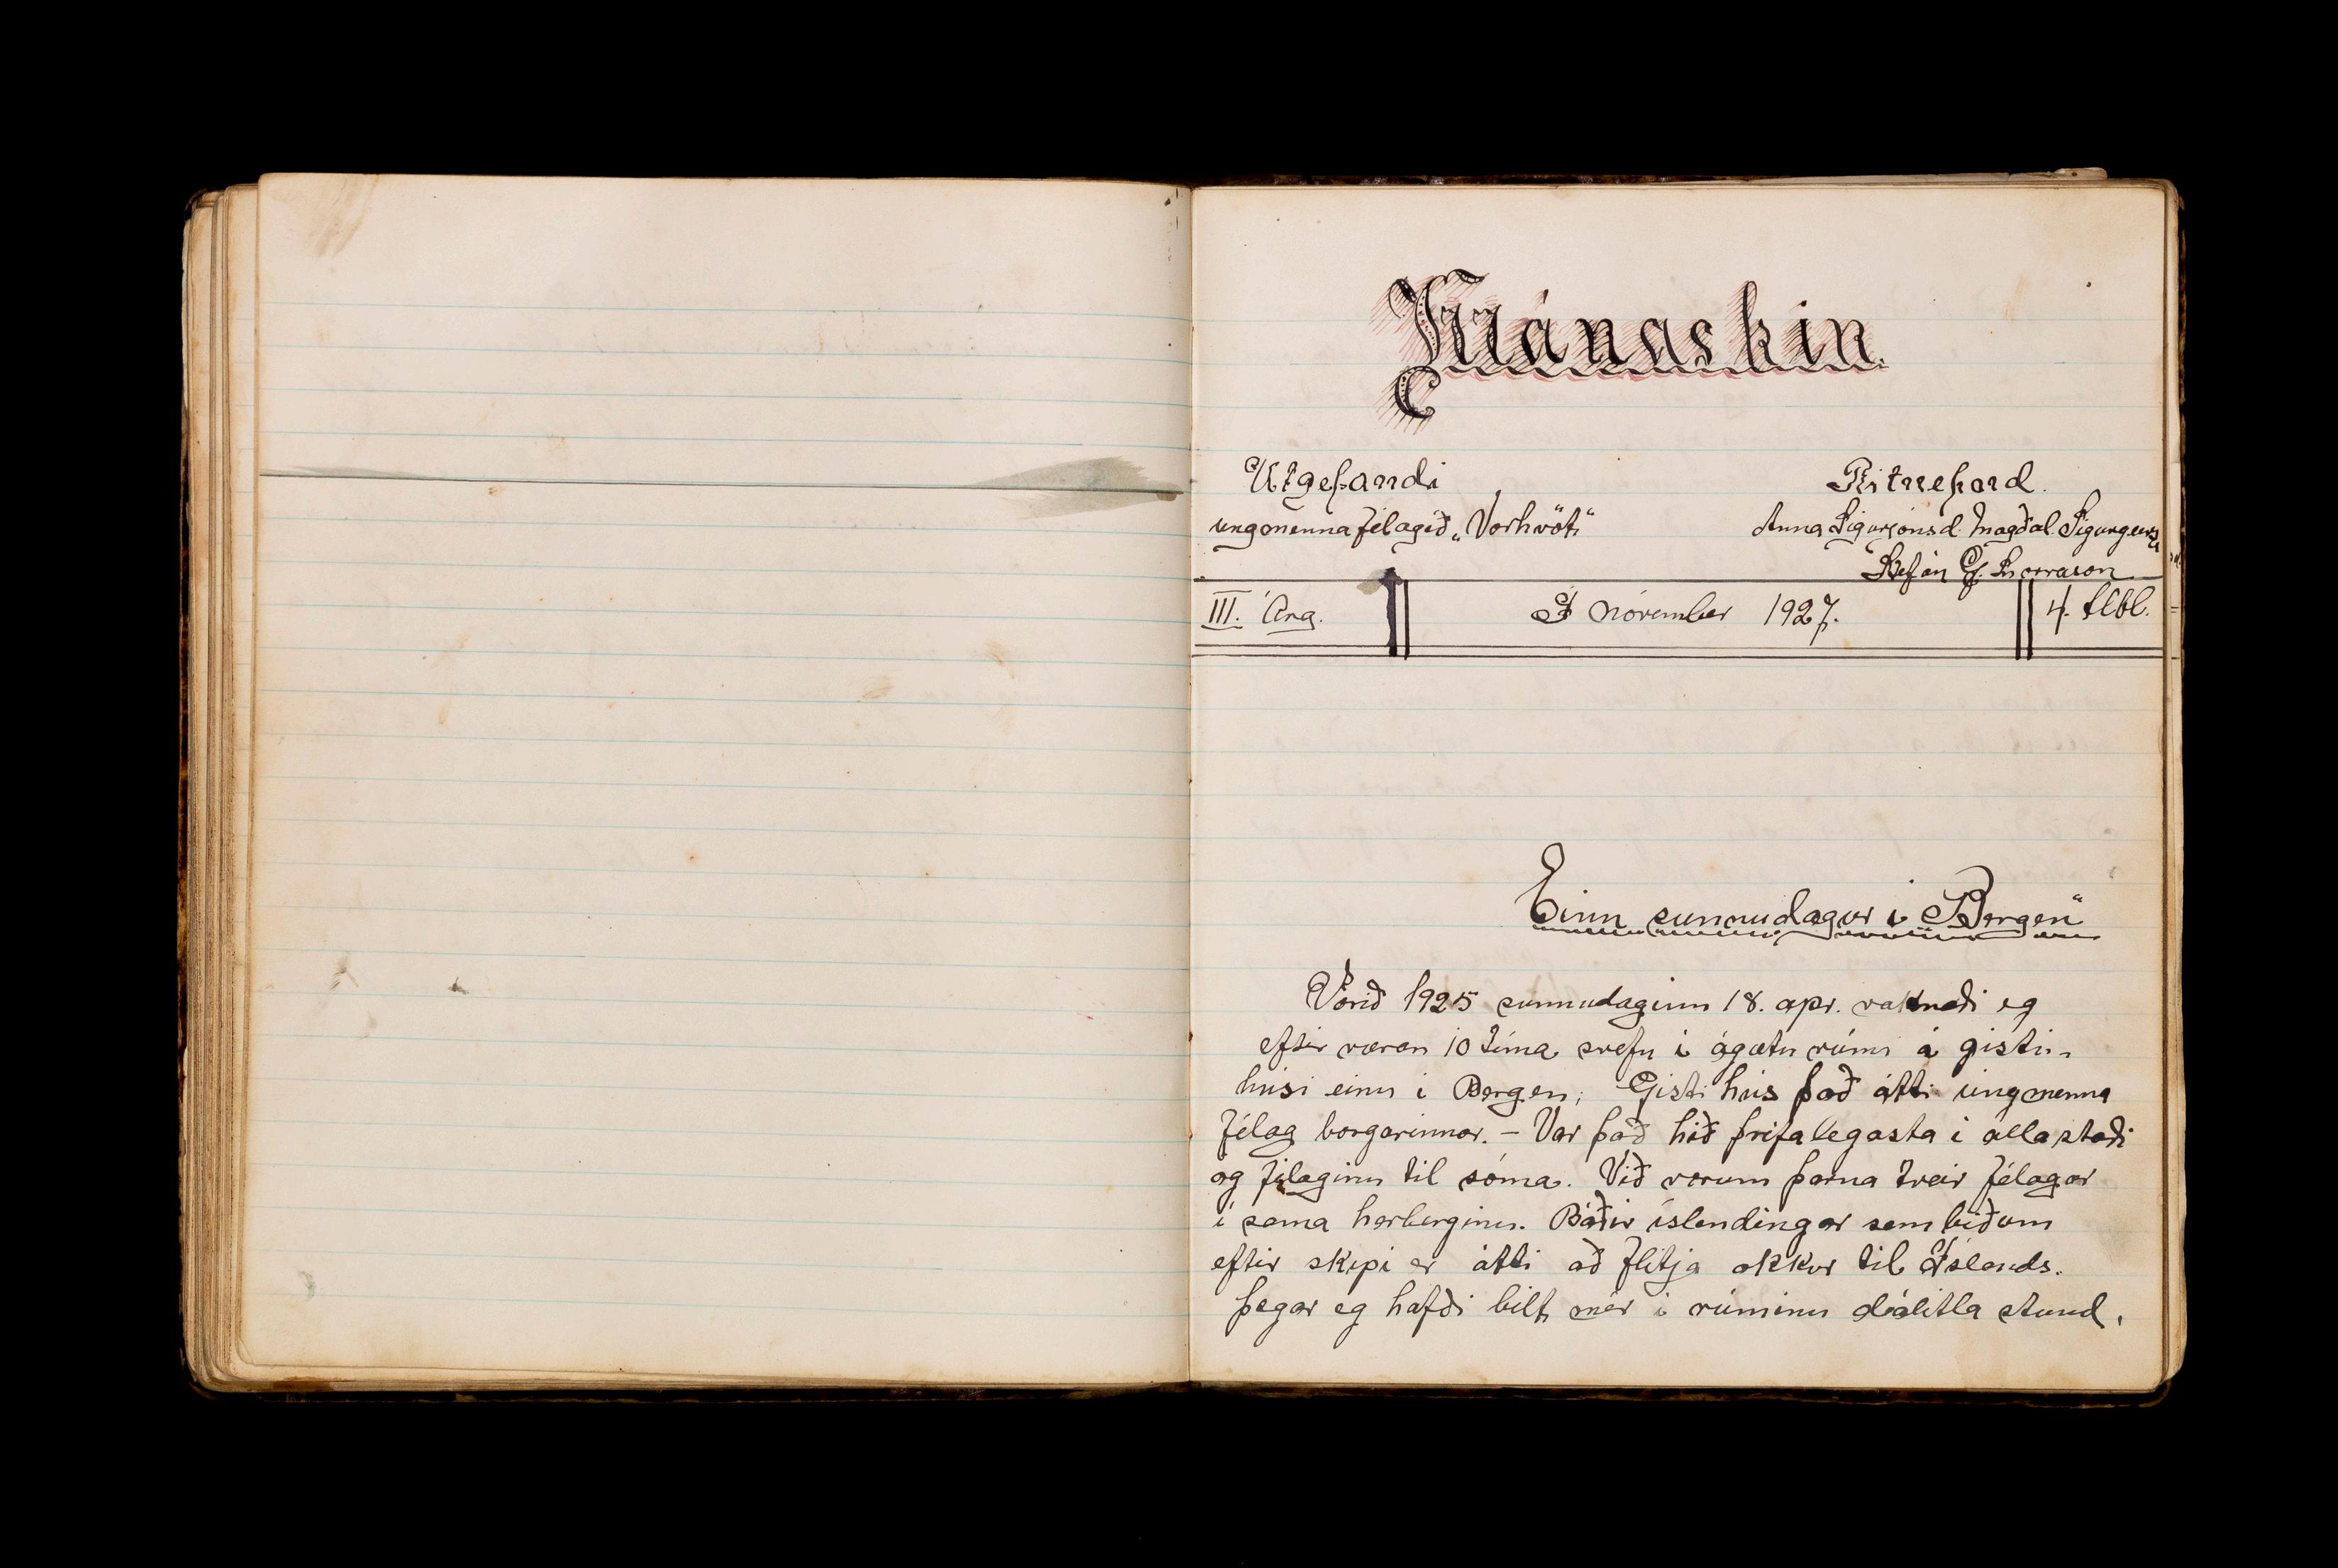 Mánaskin.
Utgefandi
Ritnefnd.
ungmennafélagið „Vorhvöt"
Anna Sigurjónsd. Magðal. Sigurgeirs
Stefán G. Snorrason
III. Árg.
Í nóvember 1927.
4. tlbl.
Einn sunnudagur í Bergen"
Vorið 1925 sunnudaginn 18. apr. vaknaði eg
eftir væran 10 tíma svefn í ágætu rúmi á gisti-
húsi einu í Bergen; Gistihús það átti ungmenna
félag borgarinnar. – Var það hið þrifalegasta í alla staði
og félaginu til sóma. Við vorum þarna tveir félagar
í sama herberginu. Báðir íslendingar sem biðum
eftir skipi er átti að flitja okkur til Íslands.
Þegar eg hafði bilt mér í rúminu dálitla stund,